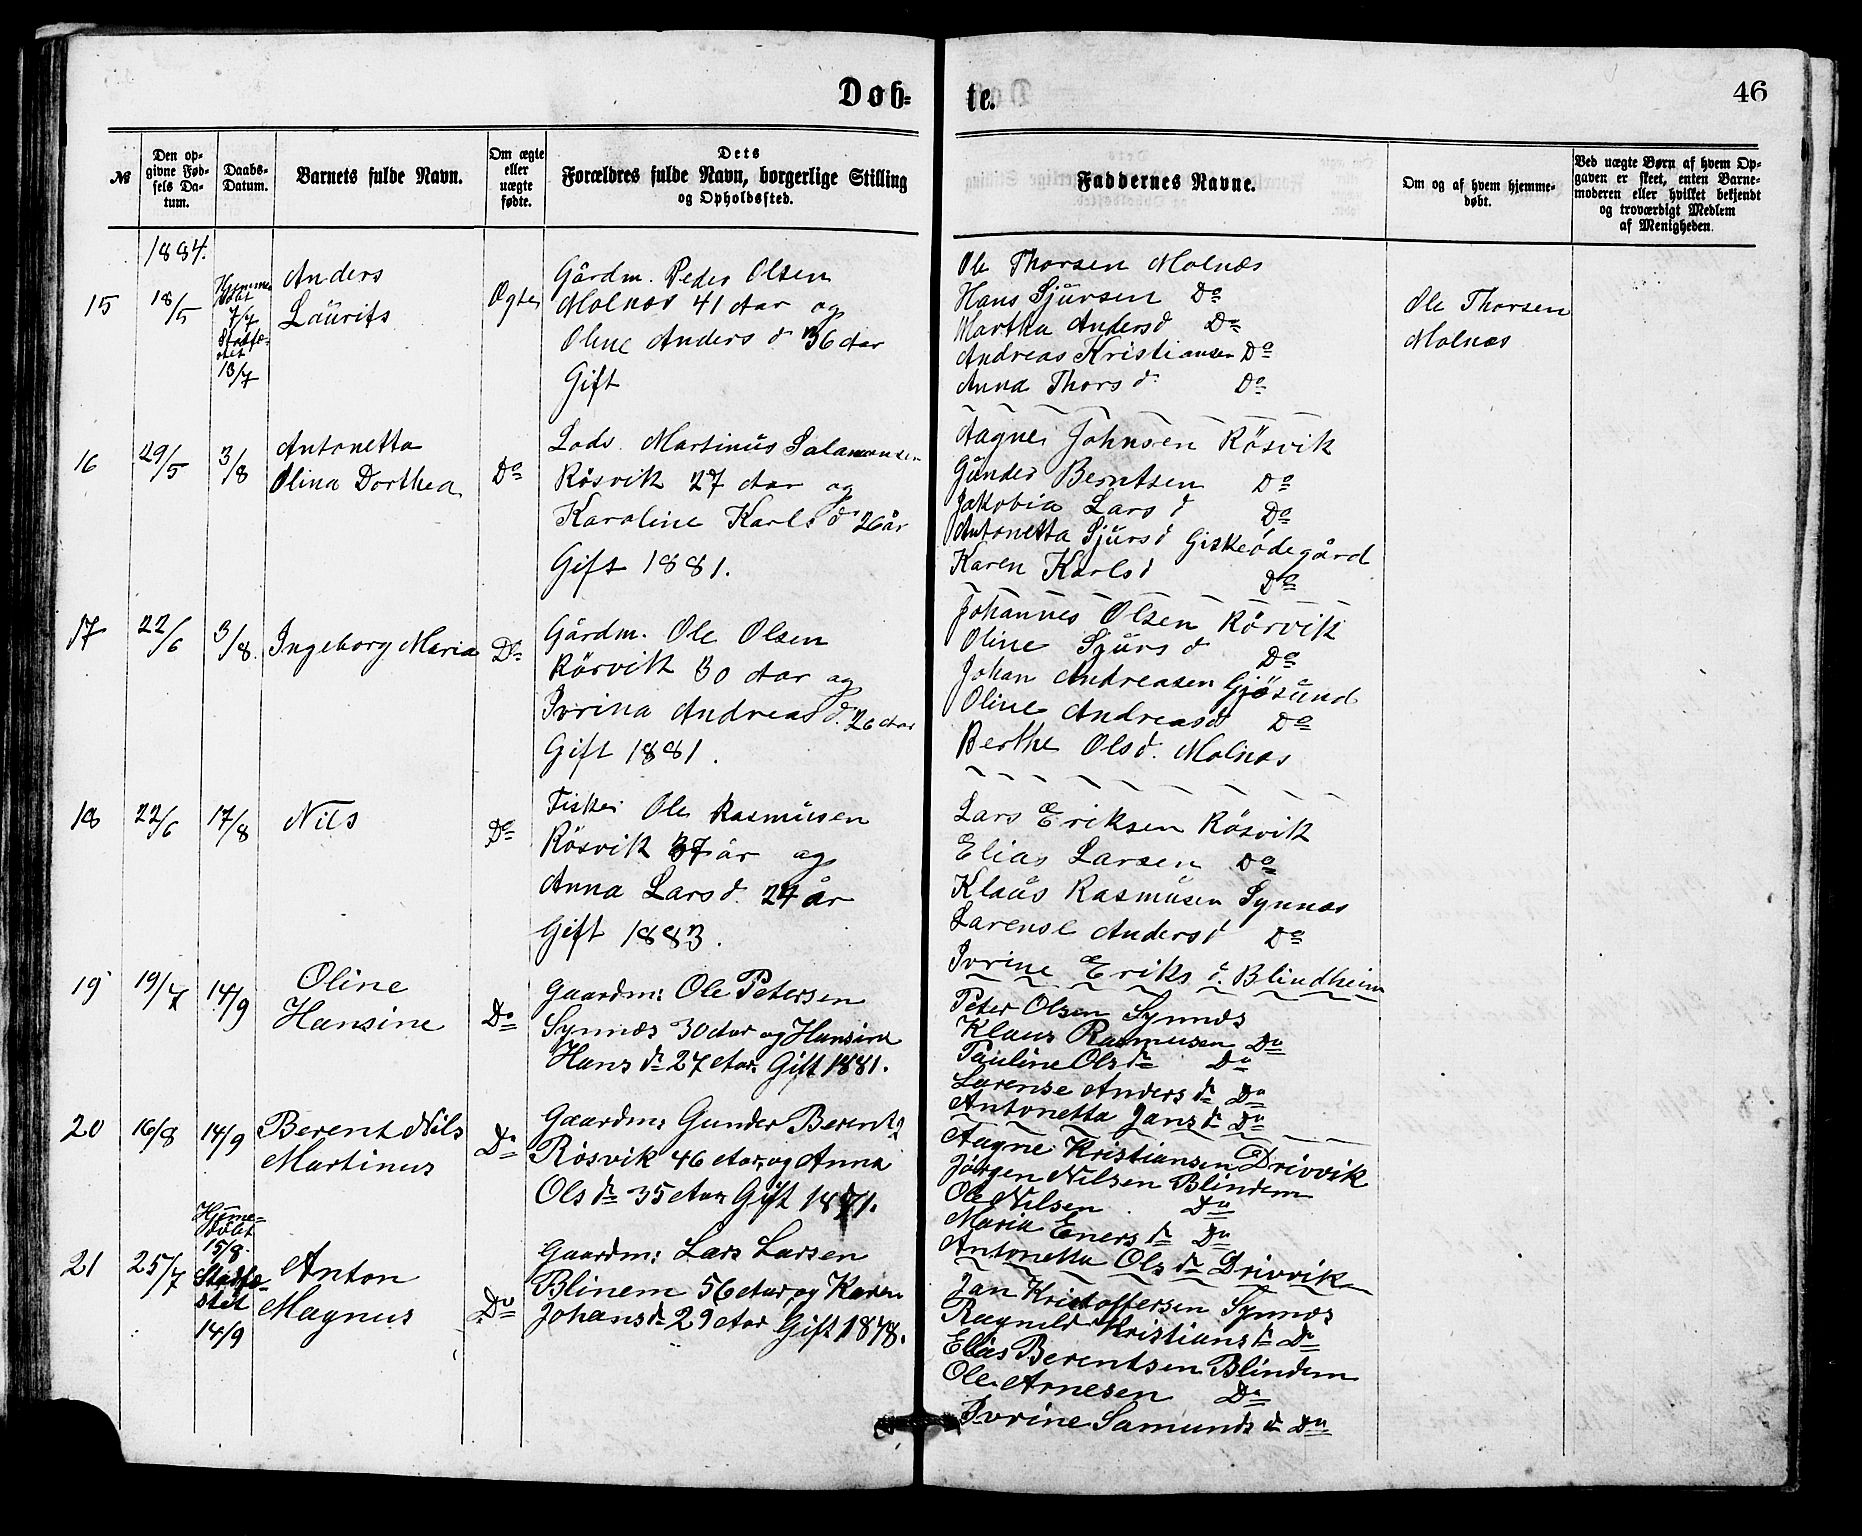 Døb-
te.
46
№
Den op-
givne Fød-
sels Da-
tum.
Daabs-
Datum.
Barnets fulde Navn.
Om ægte
eller
uægte
fødte.
Dets
Forældres fulde Navn, borgerlige Stilling
og Opholdssted.
Faddernes Navne.
Om og af hvem hjemme-
døbt.
Ved uægte Børn af hvem Op-
gaven er skeet, enten Barne-
moderen eller hvilket bekjendt
og troværdigt Medlem
af Menigheden.
1884.
15
18/5
Hjemme
døbt
7/7
Stadfæ-
stet
13/7
Anders
Laurits
Ægte
Gårdm. Peder Olsen
Molnæs 41 Aar og
Oline Anders d 36 Aar
Gift
Ole Thorsen Molnæs
Hans Sjursen Do
Martha Anders d Do
Andreas Kristiansen Do
Anna Thors d Do
Ole Thorsen
Molnæs
16
29/5
3/8
Antonetta
Olina Dorthea
Do
Lods. Martinus Salamonsen
Røsvik 27 Aar og
Karoline Karls d 26 år
Gift 1881.
Aagne Johnsen Røsvik
Gunder Berntsen Do
Jakobia Lars d Do
Antonetta Sjurs d Giskeødegård
Karen Karls d Do
17
22/6
3/8.
Ingeborg Maria
Do
Gårdm. Ole Olsen
Rørvik 30 Aar og
Ivrina Andreas d. 26 Aar
Gift 1881.
Johannes Olsen Rørvik
Oline Sjurs d Do
Johan Andreasen Gjøsund
Oline Andreasd Do
Berthe Olsd. Molnæs
18
22/6
17/8
Nils
Do
Fisker Ole Rasmusen
Røsvik 37 år og
Anna Lars d. 24 år
Gift 1883.
Lars Eriksen Røsvik
Elias Larsen Do
Klaus Rasmusen Synnæs
Larense Anders d Do
Ivrine Eriks d. Blindheim
19
19/7
14/9
Oline
Hansine
Do
Gaardm: Ole Petersen
Synnæs 30 Aar og Hansine
Hans dr 27 Aar Gift 1881.
Peter Olsen Synnæs
Klaus Rasmusen Do
Pauline Ols dr Do
Larense Anders dr Do
Antonetta Jans dr Do
20
16/8
14/9
Berent Nils
Martinus
Do
Gaardm: Gunder Berents
Røsvik 46 Aar, og Anna
Ols dr 35 Aar Gift 1871.
Aagne Kristiansen Drivvik
Jørgen Nilsen Blindem
Ole Nilsen Do
Maria Eners dr Do
Antonetta Ols dr Drivvik
21
25/7
Hjeme-
døbt
15/8.
Stadfæ-
stet
14/9
Anton
Magnus
Do
Gaardm: Lars Larsen
Blinem 56 Aar, og Karen
Johans dr 29 Aar Gift 1878.
Jan Kristoffersen Synnæs
Ragnild Kristians dr Do
Elias Berentsen Blindem
Ole Arnesen Do
Ivrine Samunds dr Do